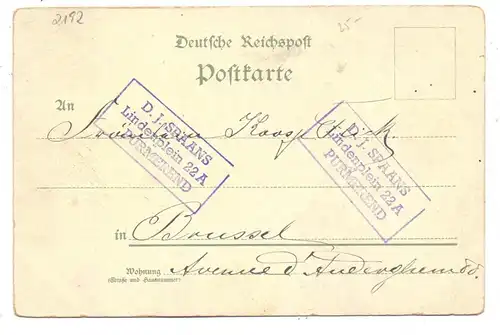 2192
25-
Deutsche Reichspost
Postkarte
An
D. J. SPAANS
Lindenplein 22A
PURMEREND
D. J. SPAANS
Lindenplein 22A
PURMEREND
Koos
in Brussel
Wohnung Avenue d'Auderghem
(Straße und Hausnummer)